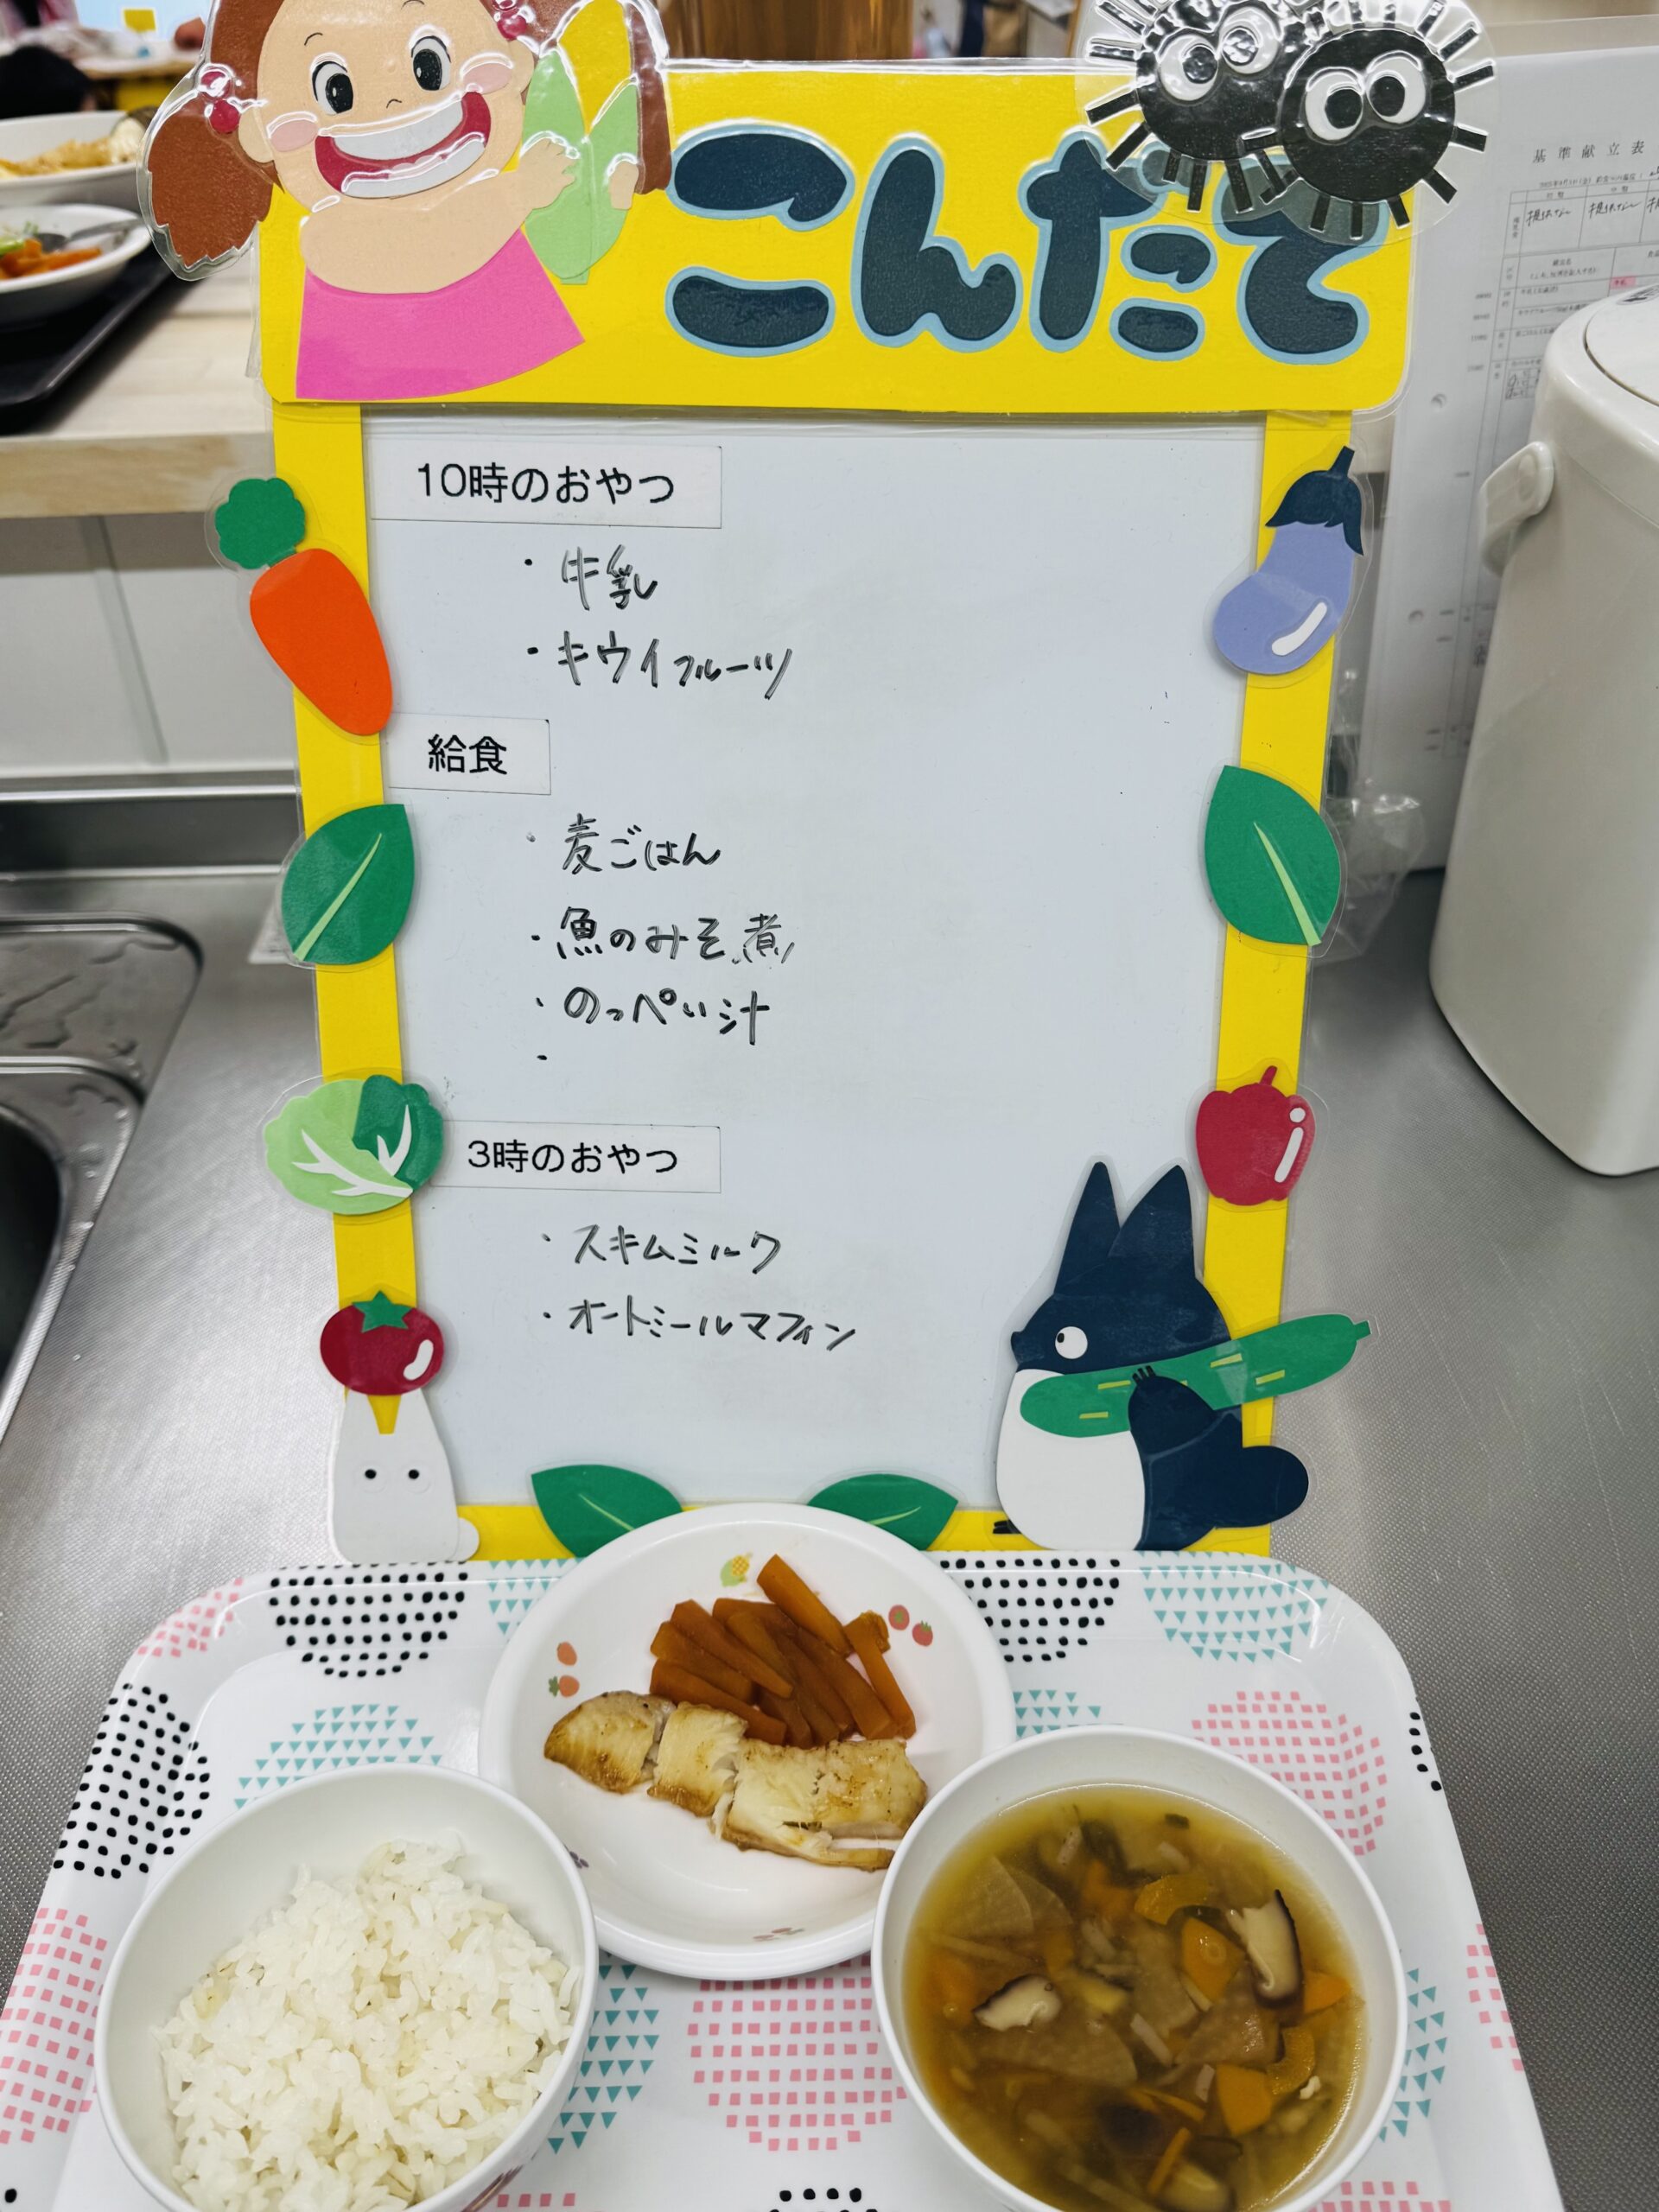 こんだて
10時のおやつ
・牛乳
・キウイフルーツ
給食
・麦ごはん
・魚のみそ煮
・のっぺい汁
・
3時のおやつ
・スキムミルク
・オートミールマフィン
基準献立表